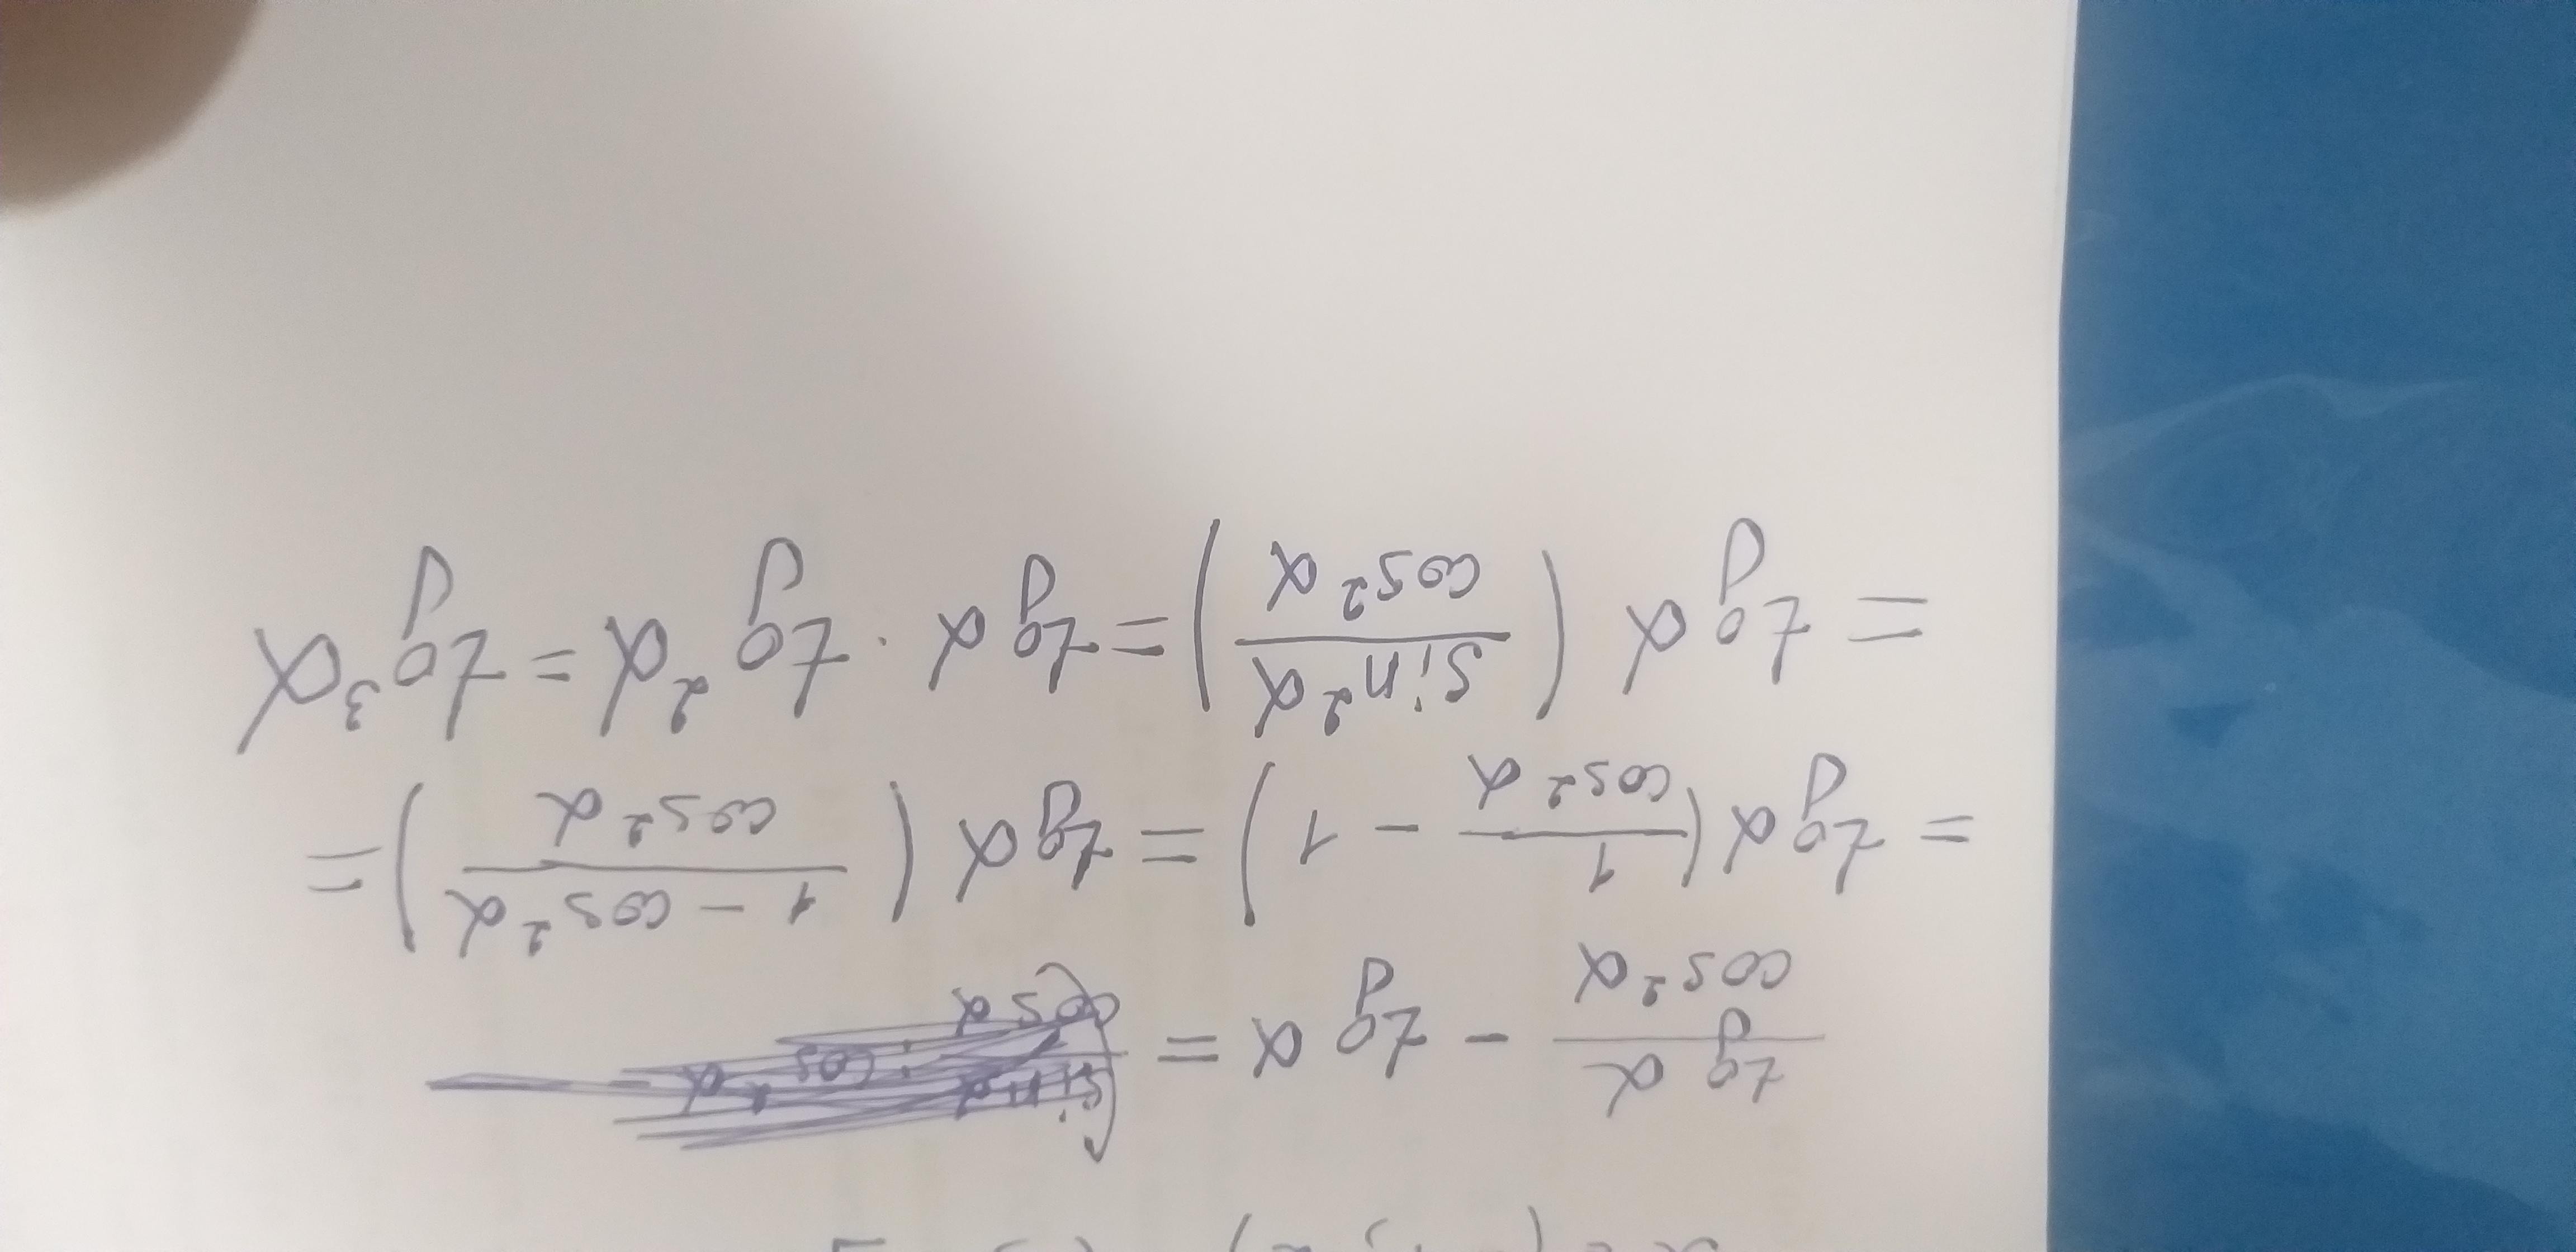 tg α / cos² α − tg α =
= tg α (1 / cos² α − 1) = tg α (1 − cos² α / cos² α) =
= tg α (sin² α / cos² α) = tg α · tg² α = tg³ α